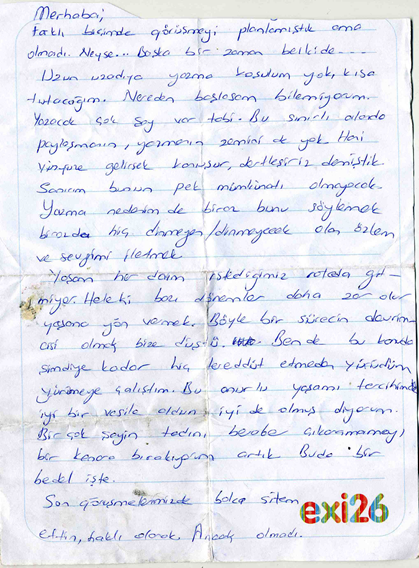 Merhaba;
Farklı biçimde görüşmeyi planlamıştık ama
olmadı. Neyse... Başka bir zaman belki de----
Uzun uzadıya yazma koşulum yok, kısa
tutacağım. Nereden başlasam bilemiyorum.
Yazacak çok şey var tabi. Bu sınırlı alanda
paylaşmanın, yazmanın zemini de yok. Hani
yüzyüze gelirsek konuşur, dertleşiriz demiştik.
Sanırım bunun pek mümkünatı olmayacak.
Yazma nedenim de biraz bunu söylemek
birazda hiç dinmeyen/dinmeyecek olan özlem
ve sevgimi iletmek.
Yaşam her daim istediğimiz rotada git-
miyor. Hele ki bazı dönemler daha zor olur
yaşama yön vermek. Böyle bir sürecin devrim-
cisi olmak bize düştü. Ben de bu konuda
şimdiye kadar hiç tereddüt etmeden yürüdüm
yürümeye çalıştım. Bu onurlu yaşamı tercihimde
iyi bir vesile oldun iyi de olmuş diyorum.
Bir çok şeyin tadını, beraber çıkaramamayı
bir kenara bırakıyorum artık. Buda bir
bedel işte.
Son görüşmelerimizde bolca sitem
ettin, haklı olarak. Ancak olmadı.
exi26